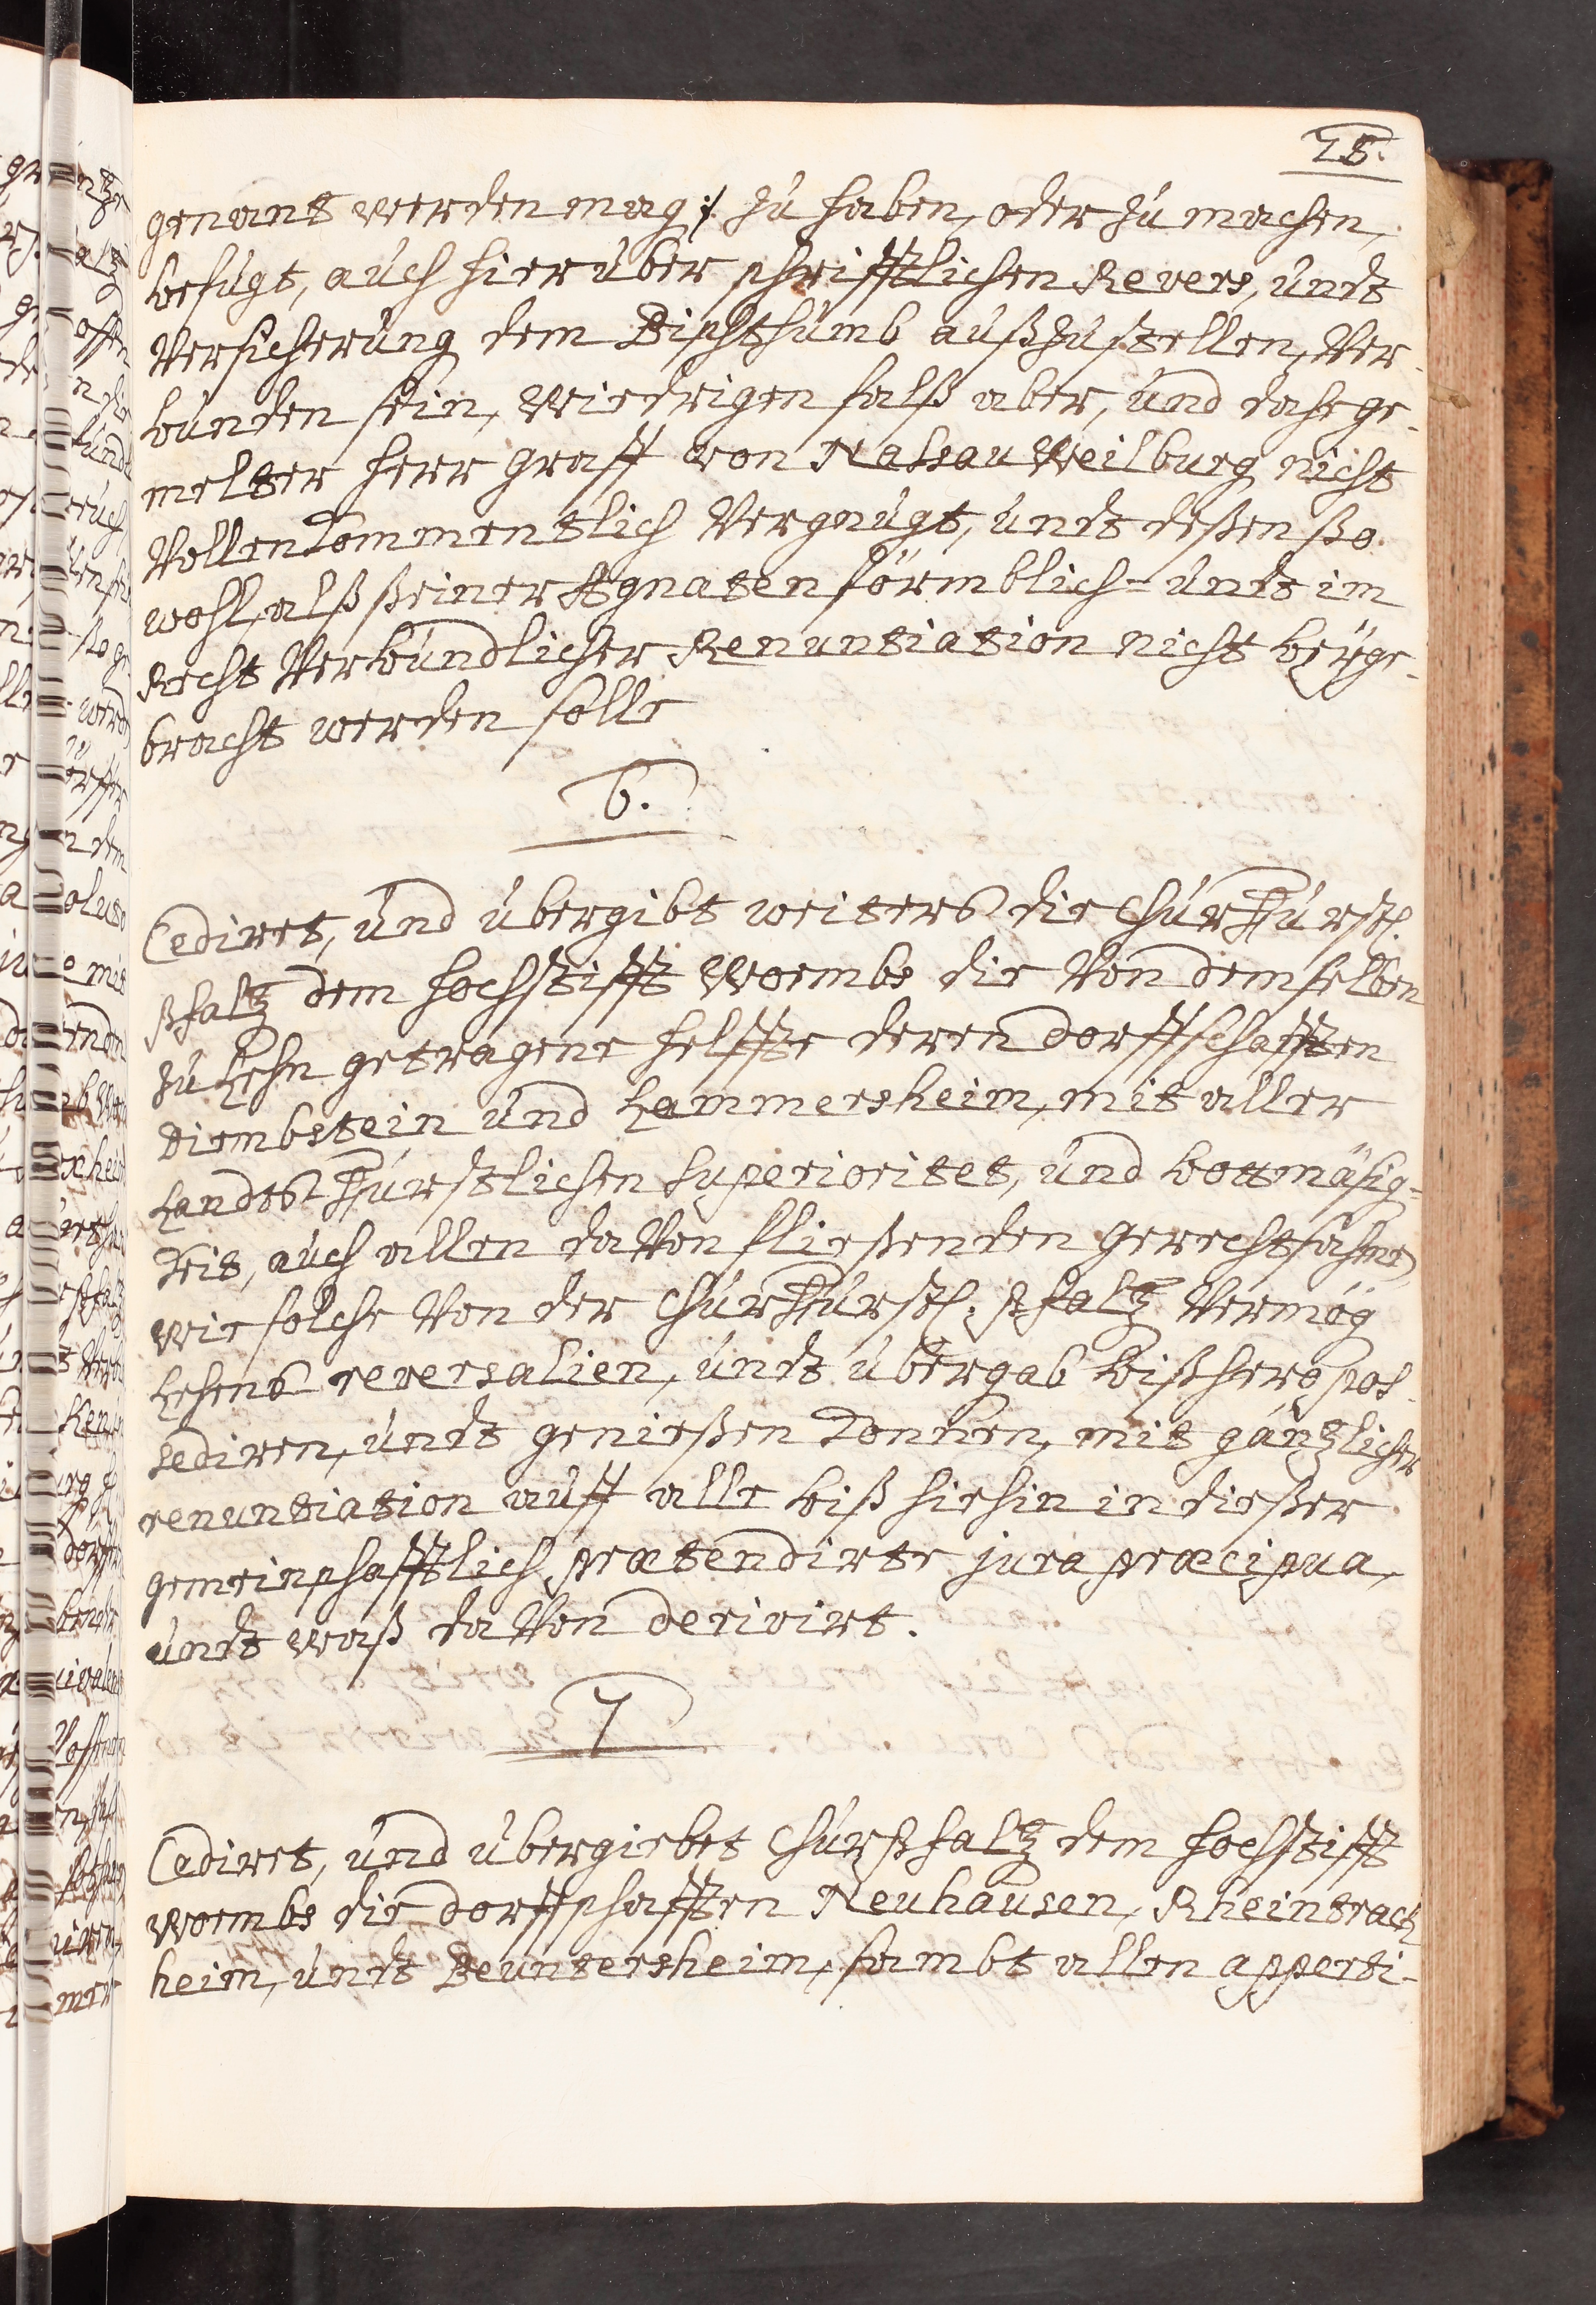 28.
genant werden mag :/. zu haben, oder zu machen,
befügt, auch hierüber schrifftlichen Revers, undt
Versicherung dem Bischthumb außzustellen, Ver-
bunden sein, wiedrigen falß aber, und dafe ge-
melter Herr Graff von Nassau Weilburg nicht
Vollenkommentlich Vergnügt, undt deßen ßo
wohl, alß ßeiner Agnaten förmblich- undt im
Recht Verbündlicher Renuntiation nicht beyge-
bracht werden solle
6.
Cediret, und übergibt weiters die Churfürstl.
Pfaltz dem Hochstifft Wormbs die Von demselben
zu Lehn getragene Helffte deren dorffschafften
Dirmbstein und Lammersheim, mit aller
Landts Fürstlichen Superioritet, und bottmäsig-
keit, auch allen daVon fließenden gerechtsahme,
wie solche Von der Churfürstl. Pfaltz Vermög
Lehens reversalien, undt übergab bißhero pos-
sediren, undt genießen können, mit gäntzlicher
renuntiation auff alle biß hiehin in dießer
gemeinschafftlich prætendirte jura præcipua,
undt waß daVon derivirt.
7
Cediret, und übergiebet Churpfaltz dem Hochstifft
Wormbs die dorffschafften Neuhausen, Rheintrack
heim, undt Beuntersheim, sambt allen apperti-